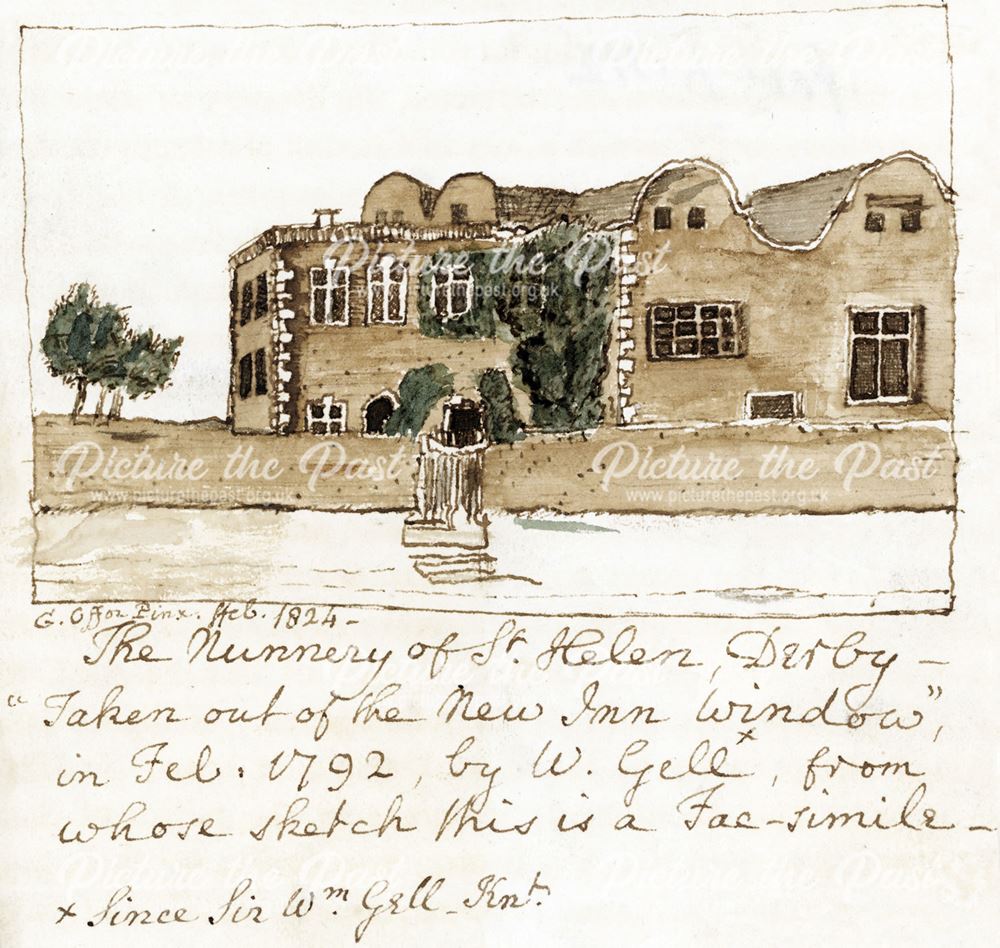 Picture the Past
Picture the Past
Picture the Past
www.picturethepast.org.uk
Picture the Past
www.picturethepast.org.uk
Picture the Past
www.picturethepast.org.uk
G. Offor Pinx. Feb. 1824 -
The Nunnery of St. Helen, Derby -
"Taken out of the New Inn Window",
in Feb. 1792, by W. Gell x, from
whose sketch this is a Fac-simile -
x Since Sir Wm. Gell - Knt.